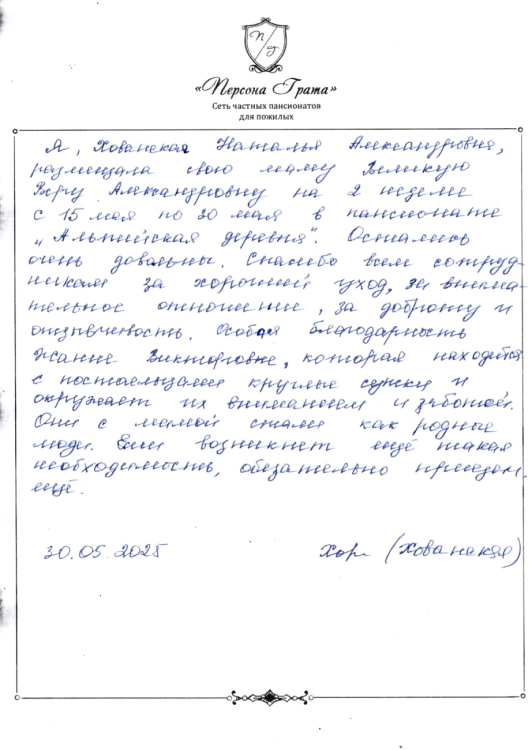 П Г
«Персона Грата»
Сеть частных пансионатов
для пожилых
Я, Хованская Наталья Александровна,
размещала свою маму Великую
Веру Александровну на 2 недели
с 15 мая по 30 мая в пансионате
„Альпийская деревня". Остались
очень довольны. Спасибо всем сотруд-
никам за хороший уход, за внима-
тельное отношение, за доброту и
отзывчивость. Особая благодарность
Жанне Викторовне, которая находится
с постояльцами круглые сутки и
окружает их вниманием и заботой.
Они с мамой стали как родные
люди. Если возникнет ещё такая
необходимость, обязательно приедем
ещё.
30.05.2025 (Хованская)